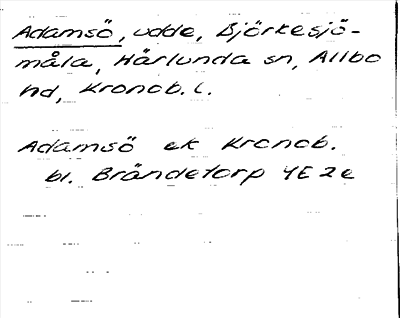 Adamsö, udde, Björkesjö-
måla, Härlunda sn, Allbo
hd, Kronob. l.
Adamsö ek Kronob.
bl. Brändetorp 4E 2e